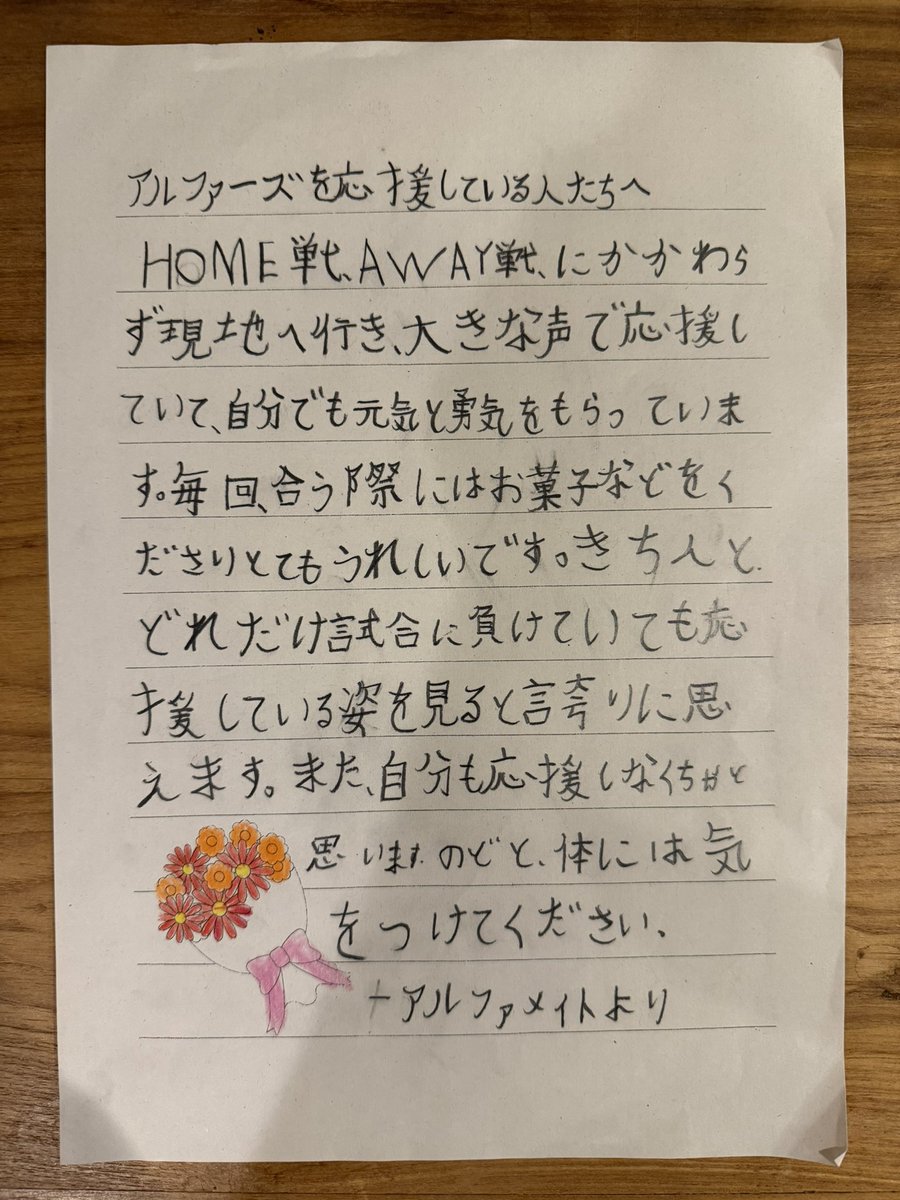 アルファーズを応援している人たちへ
HOME戦、AWAY戦、にかかわら
ず現地へ行き、大きな声で応援し
ていて、自分でも元気と勇気をもらっていま
す。毎回、合う際にはお菓子などをく
ださりとてもうれしいです。きちんと
どれだけ試合に負けていても応
援している姿を見ると誇りに思
えます。また、自分も応援しなくちゃと
思います。のどと、体には気
をつけてください、
アルファメイトより